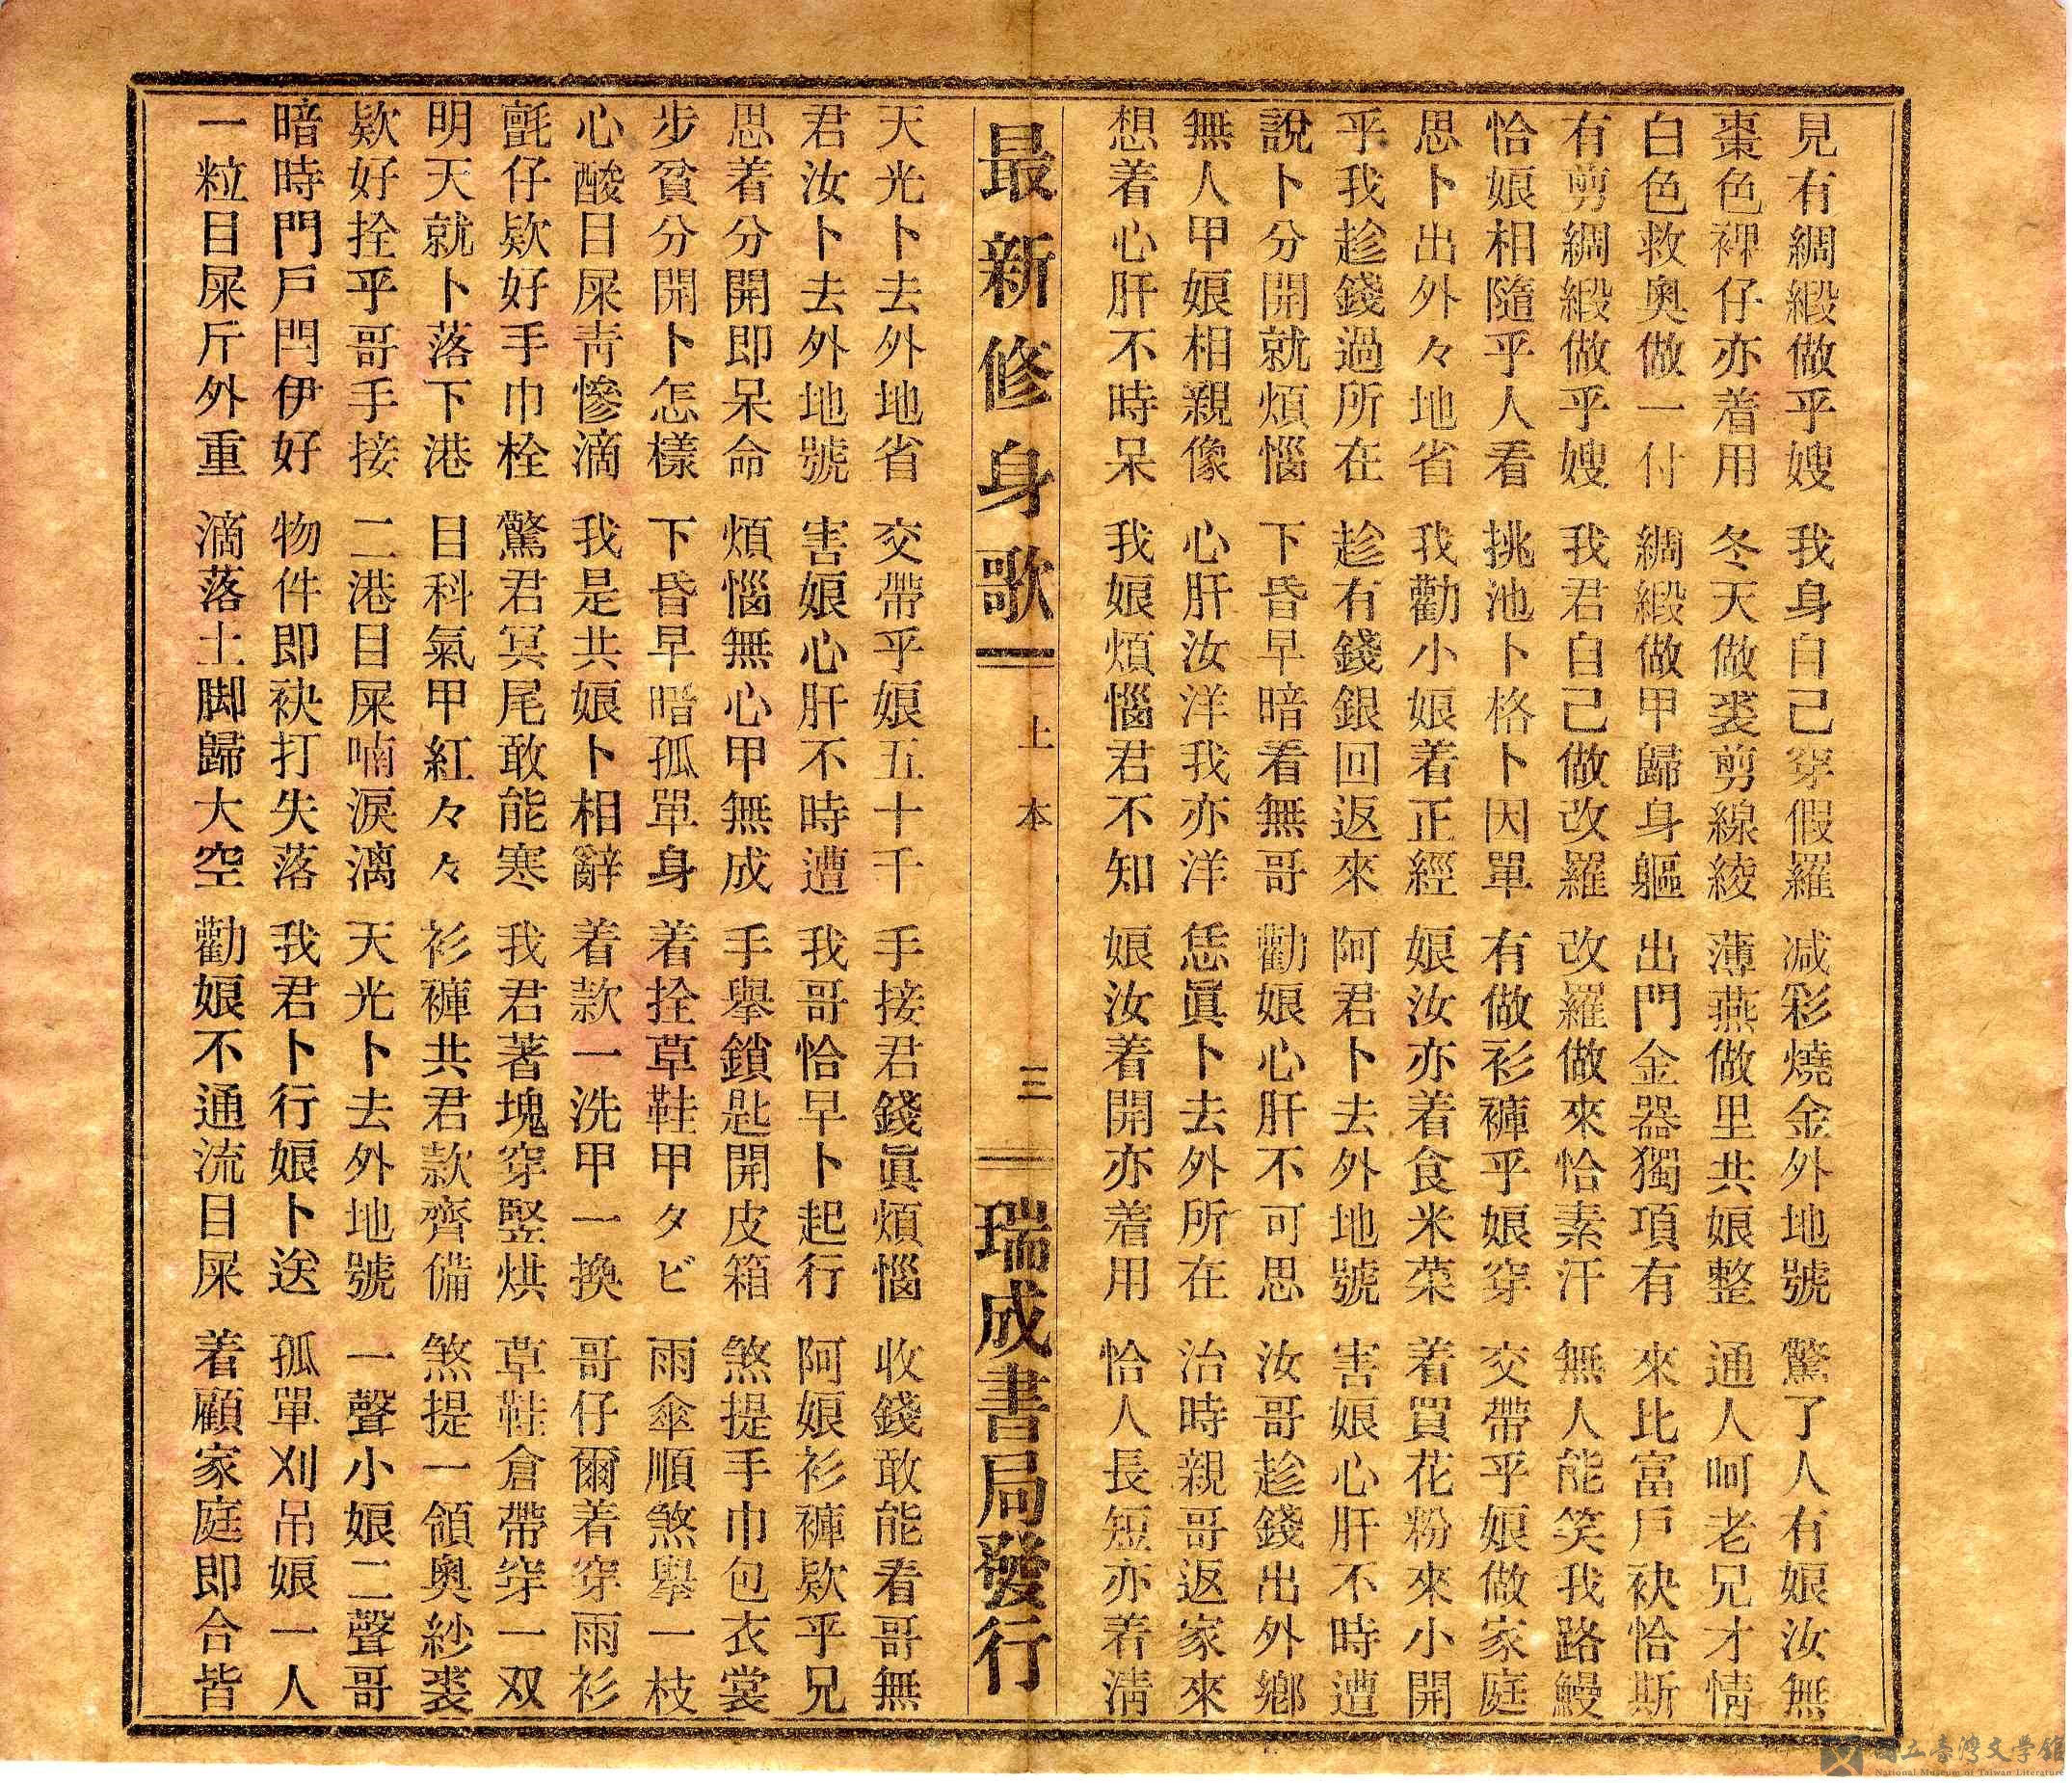 見有綢緞做乎嫂　我身自己穿假羅　减彩燒金外地號　驚了人有娘汝無
棗色裨仔亦着用　冬天做裘剪線綾　薄燕做里共娘整　通人呵老兄才情
白色救奧做一付　綢緞做甲歸身軀　出門金器獨項有　來比富戶袂恰斯
有剪綢緞做乎嫂　我君自己做改羅　改羅做來恰素汗　無人能笑我路鰻
恰娘相隨乎人看　挑池卜格卜因單　有做衫褲乎娘穿　交帶乎娘做家庭
思卜出外々地省　我勸小娘着正經　娘汝亦着食米菜　着買花粉來小開
乎我趁錢過所在　趁有錢銀回返來　阿君卜去外地號　害娘心肝不時遭
說卜分開就煩惱　下昏早暗看無哥　勸娘心肝不可思　汝哥趁錢出外鄉
無人甲娘相親像　心肝汝洋我亦洋　恁眞卜去外所在　治時親哥返家來
想着心肝不時呆　我娘煩惱君不知　娘汝着開亦着用　恰人長短亦着淸
最新修身歌　上本　三　瑞成書局發行
天光卜去外地省　交帶乎娘五十千　手接君錢眞煩惱　收錢敢能看哥無
君汝卜去外地號　害娘心肝不時遭　我哥恰早卜起行　阿娘衫褲欵乎兄
思着分開即呆命　煩惱無心甲無成　手擧鎖匙開皮箱　煞提手巾包衣裳
步貧分開卜怎樣　下昏早暗孤單身　着拴草鞋甲タビ　雨傘順煞擧一枝
心酸目屎靑慘滴　我是共娘卜相辭　着款一洗甲一換　哥仔爾着穿雨衫
氈仔欵好手巾栓　驚君冥尾敢能寒　我君著塊穿竪烘　草鞋倉帶穿一双
明天就卜落下港　目科氣甲紅々々　衫褲共君款齊備　煞提一領奧紗裘
欵好拴乎哥手接　二港目屎喃淚漓　天光卜去外地號　一聲小娘二聲哥
暗時門戶閂伊好　物件即袂打失落　我君卜行娘卜送　孤單刈吊娘一人
一粒目屎斤外重　滴落土脚歸大空　勸娘不通流目屎　着顧家庭即合皆
國立臺灣文學館
National Museum of Taiwan Literature